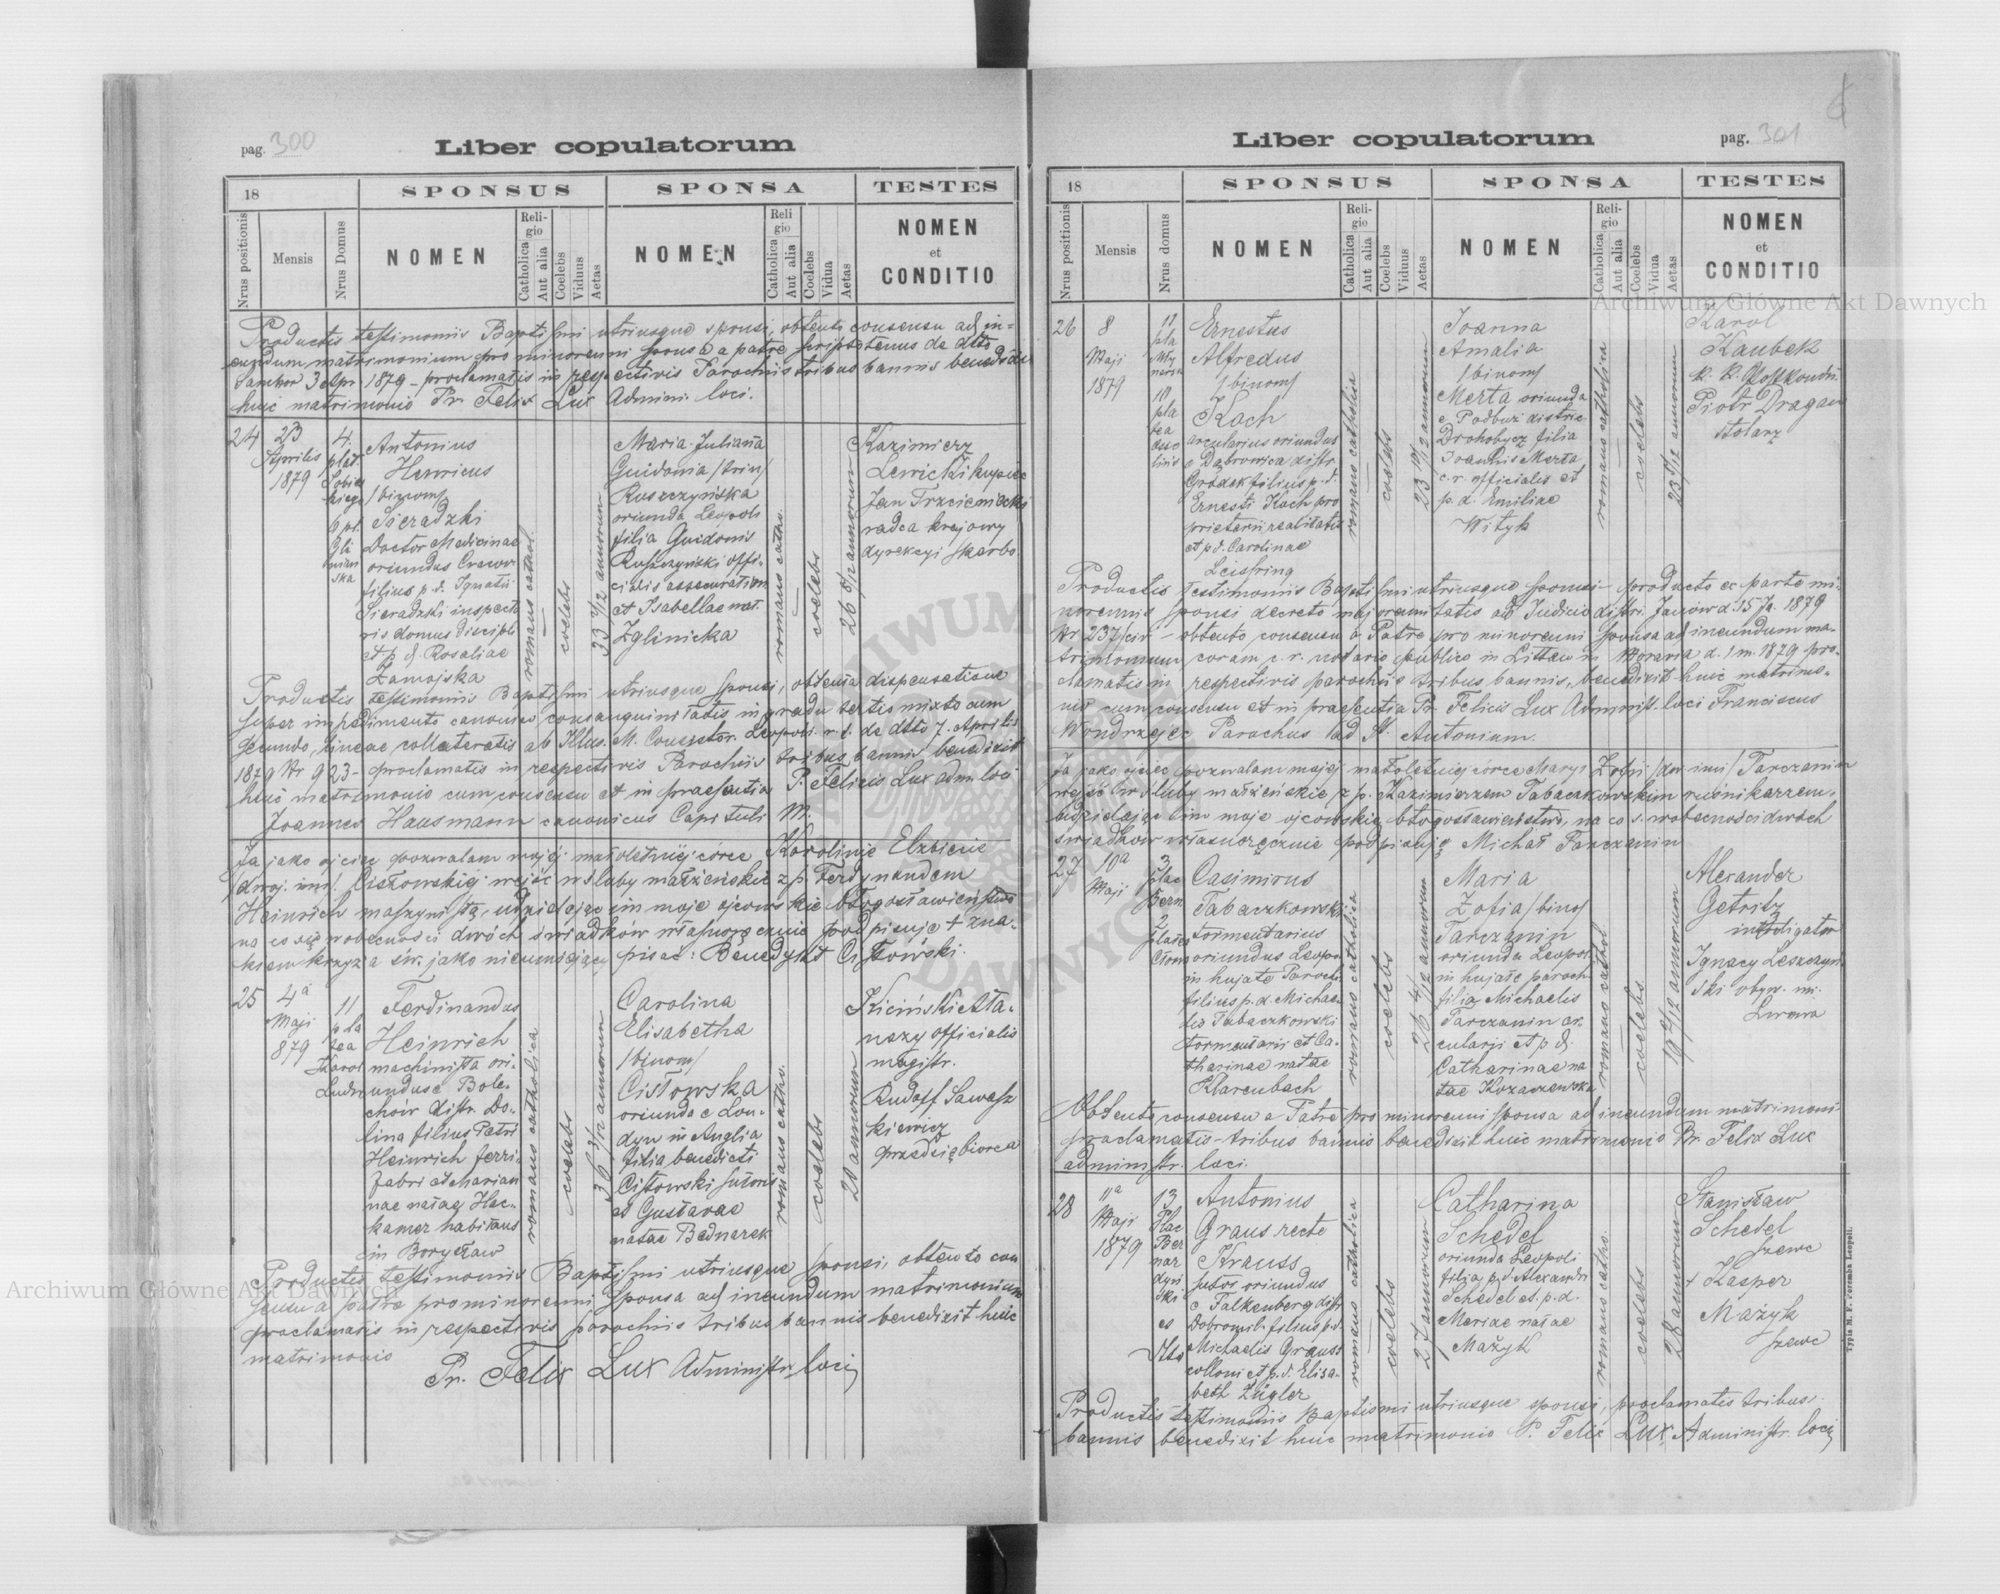 pag. 300
Liber copulatorum
18
SPONSUS
SPONSA
TESTES
Nrus positionis
Mensis
Nrus Domus
NOMEN
Religio
Catholica
Aut alia
Coelebs
Viduus
Aetas
NOMEN
Religio
Catholica
Aut alia
Coelebs
Vidua
Aetas
NOMEN
et
CONDITIO
Productis testimoniis Baptismi utriusque sponsi, obtento consensu ad in-
eundum matrimonium pro minorenni sponsa a patre scriptotenus de dtto
Sambor 3 Apr 1879 - proclamatis in respectivis Parochiis tribus bannis
huic matrimonio Pr. Felix Lux Admini. loci.
24
23
Aprilis
1879
4.
plac
Sobie
skiego
6 pl.
Gli
nian
ska
Antonius
Henricus
/binom/
Sieradzki
Doctor Medicinae
oriundus
filius p. d. Ignatii
Sieradzki inspecto
ris domus discipli
et p. d. Rosaliae
Zamojska
romano cathol.
coelebs
33 annorum
Maria Juliana
Guidonia /trin/
Ruszczyńska
oriunda Leopoli
filia Guidonis
Ruszczyński offi-
cialis assecuration
et Isabellae nat.
Zglinicka
romano catho.
coelebs
26 8/12 annorum
Kazimierz
Lewicki kupiec
Jan
radca krajowy
dyrekcyi skarbo
Productis testimoniis Baptismi utriusque sponsi, obtenta dispensatione
super impedimento canonico consanguinitatis in gradu tertio mixto cum
secundo, lineae collateralis ab Illus. M. Consistor. Leopoli. r. l. de dtto 7. Aprilis
1879 Nr 923 - proclamatis in respectivis Parochiis tribus bannis benedixit
huic matrimonio cum consensu et in praesentia P. Felicis Lux adm. loci
Joannes Hausmann canonicus Capituli M.
Ja jako ojciec pozwalam mojéj małoletniéj córce Karolinie Elżbiecie
/dwoj. im/ Cisłowskiéj wejść w śluby małżeńskie z p. Ferdynandem
Heinrich maszynistą, udzielając im moje ojcowskie błogosławieństwo
na co się w obecności dwóch świadków własnoręcznie podpisuję + zna-
kiem krzyża św. jako nieumiejący pisać: Benedykt Cisłowski.
25
4a
Maji
879
11
pla
tea
Karol
Ludw
Ferdinandus
Heinrich
machinista ori-
undus e Bole-
chow distr. Do-
lina filius Patri
Heinrich ferri-
fabri et Marian
nae natae Hec-
kamer habitans
in Borysław
romano catholica
coelebs
36 annorum
Carolina
Elisabetha
/binom/
Cisłowska
oriunda e Lon-
dyn in Anglia
filia benedicti
Cisłowski sutoris
et Gustavae
natae Bednarek
romano catho.
coelebs
20 annorum
Kiciński Ata-
nazy officialis
magistr.
Rudolf Sawasz
kiewicz
przedsiębiorca
Productis testimoniis Baptismi utriusque sponsi, obtento con
sensu a patre pro minorenni sponsa ad ineundum matrimonium
proclamatis in respectivis parochiis tribus bannis benedixit huic
matrimonio
Pr. Felix Lux Administr. loci
pag. 301
Liber copulatorum
18
SPONSUS
SPONSA
TESTES
Nrus positionis
Mensis
Nrus domus
NOMEN
Religio
Catholica
Aut alia
Coelebs
Viduus
Aetas
NOMEN
Religio
Catholica
Aut alia
Coelebs
Vidua
Aetas
NOMEN
et
CONDITIO
26
8
Maji
1879
11
pla
10
pla
tea
Ernestus
Alfredus
/binom/
Koch
arcularius oriundus
e Dąbrowica distr.
Gródek filius p. d.
Ernesti Koch pro
prietarii realitatis
et p. d. Carolinae
Leisring
romano catholica
coelebs
23 10/12 annorum
Joanna
Amalia
/binom/
Merta oriunda
e Podbuż distric
Drohobycz filia
Joannis Merta
c. r. officialis et
p. d. Emiliae
Wityk
romano catholica
coelebs
23 5/12 annorum
Karol
Kaubek
k. k. Postkondu
Piotr Dragan
stolarz
Productis testimoniis Baptismi utriusque sponsi - producto ex parte mi-
norennis sponsi decreto majorennitatis ab Judicio distri. Janów d. 15 Ja. 1879
Nr 237/civ - obtento consensu a Patre pro minorenni sponsa ad ineundum ma-
trimonium coram c. r. notario publico in Littau in Moravia d. 1 m. 1879 pro-
clamatis in respectivis parochiis tribus bannis, benedixit huic matrimo-
nio cum consensu et in praesentia Pr. Felicis Lux Administ. loci Franciscus
Wondrzejec Parochus ad St. Antonium.
Ja jako ojciec pozwalam mojéj małoletniéj córce Maryi Zofii /dw. imi/ Tarczanin
wejść w śluby małżeńskie z p. Kazimierzem Tabaczkowskim rusnikarzem,
udzielając im moje ojcowskie błogosławieństwo, na co s. w obecności dwóch
świadków własnoręcznie podpisuję Michał Tarczanin
27
10a
Maji
3
plac
Bern
2
Casimirus
Tabaczkowski
tormentarius
oriundus Leopoli
in hujate Paroch
filius p. d. Michae-
lis Tabaczkowski
tormentaris et Ca-
tharinae natae
Klarenbach
romano catholica
coelebs
26 4/12 annorum
Maria
Zofia /bino/
Tarczanin
oriunda Leopol
in hujate paroch
filia Michaelis
Tarczanin ar.
cularis et p. d.
Catharinae na
tae Kozaczewska
romano cathol
coelebs
19 annorum
Alexander
Getritz
introligator
Ignacy Leszczyń
ski obyw. m.
Lwowa
Obtento consensu a Patre pro minorenni sponsa ad ineundum matrimoni
proclamatis tribus bannis benedixit huic matrimonio Pr. Felix Lux
administr. loci.
28
11a
Maji
1879
13
Plac
Ber
nar
dyń
ski
Antonius
Graus recte
Krauss
sutor oriundus
e Falkenberg distr
Dobromil filius p. d.
Michaelis Grauss
colloni et p. d. Elisa-
beth Zügler
romano catholica
coelebs
27 annorum
Catharina
Schedel
oriunda Leopoli
filia p. d. Alexandri
Schedel et p. d.
Mariae natae
Mażyk
romano catho.
coelebs
28 annorum
Stanisław
Schedel
szewc
+ Kasper
Mażyk
szewc
Productis testimoniis Baptismi utriusque sponsi, proclamatis tribus
bannis benedixit huic matrimonio P. Felix Lux, Administr. loci
Typis M. F. Poremba Leopoli.
Archiwum Główne Akt Dawnych
Archiwum Główne Akt Dawnych